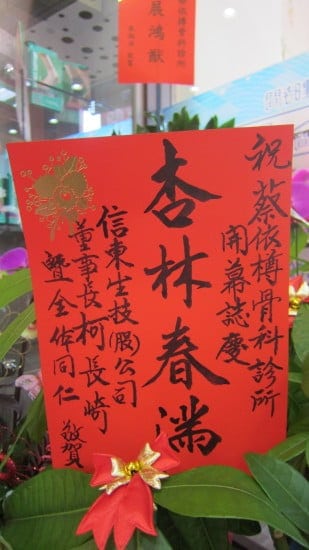 祝蔡依樽骨科診所
開幕誌慶
杏林春滿
信東生技(股)公司
董事長柯長崎
暨全体同仁 敬賀
展鴻猷
骨科診所